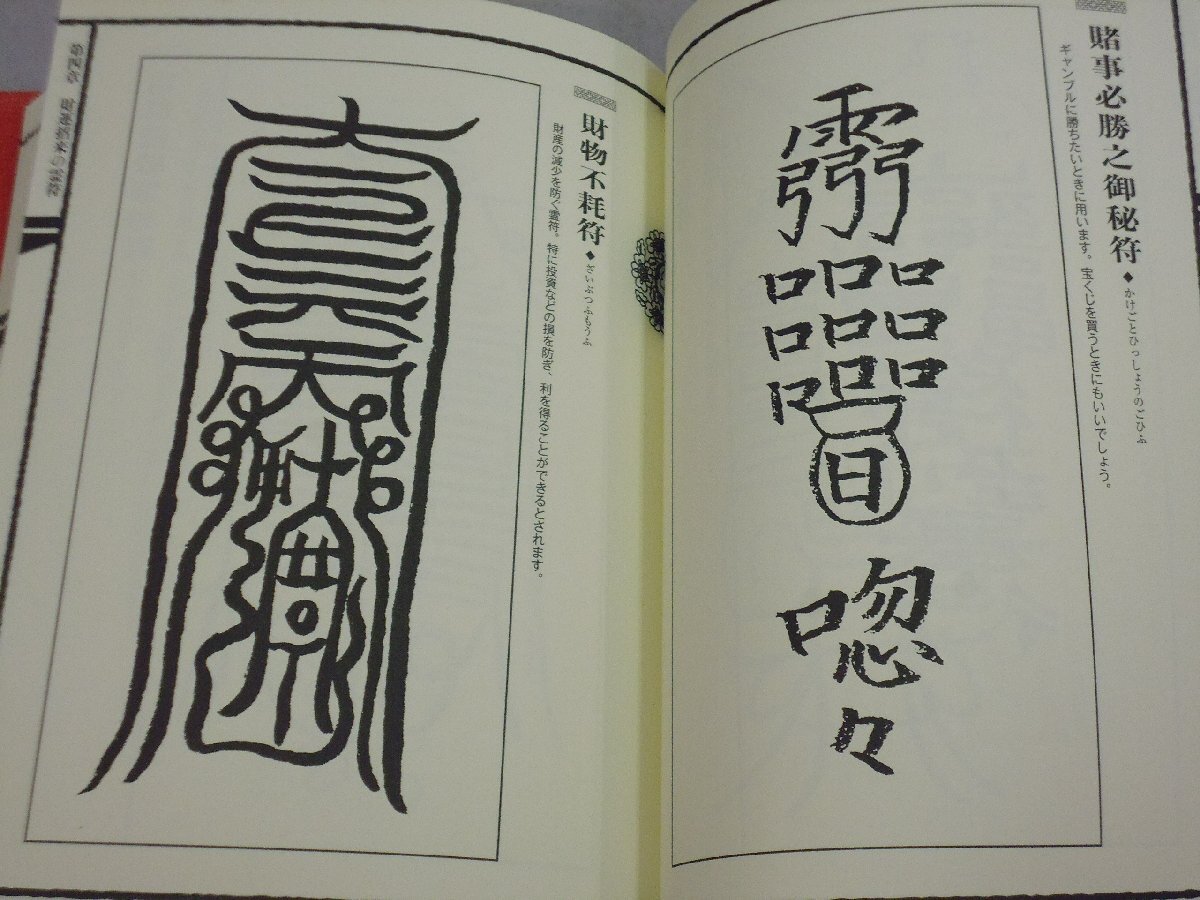 賭事必勝之御秘符◆かけごとひっしょうのごひふ
ギャンブルに勝ちたいときに用います。宝くじを買うときにもいいでしょう。
日
唿々
財物不耗符◆ざいぶつふもうふ
財産の減少を防ぐ霊符。特に投資などの損を防ぎ、利を得ることができるとされます。
第四章 財運招来の霊符